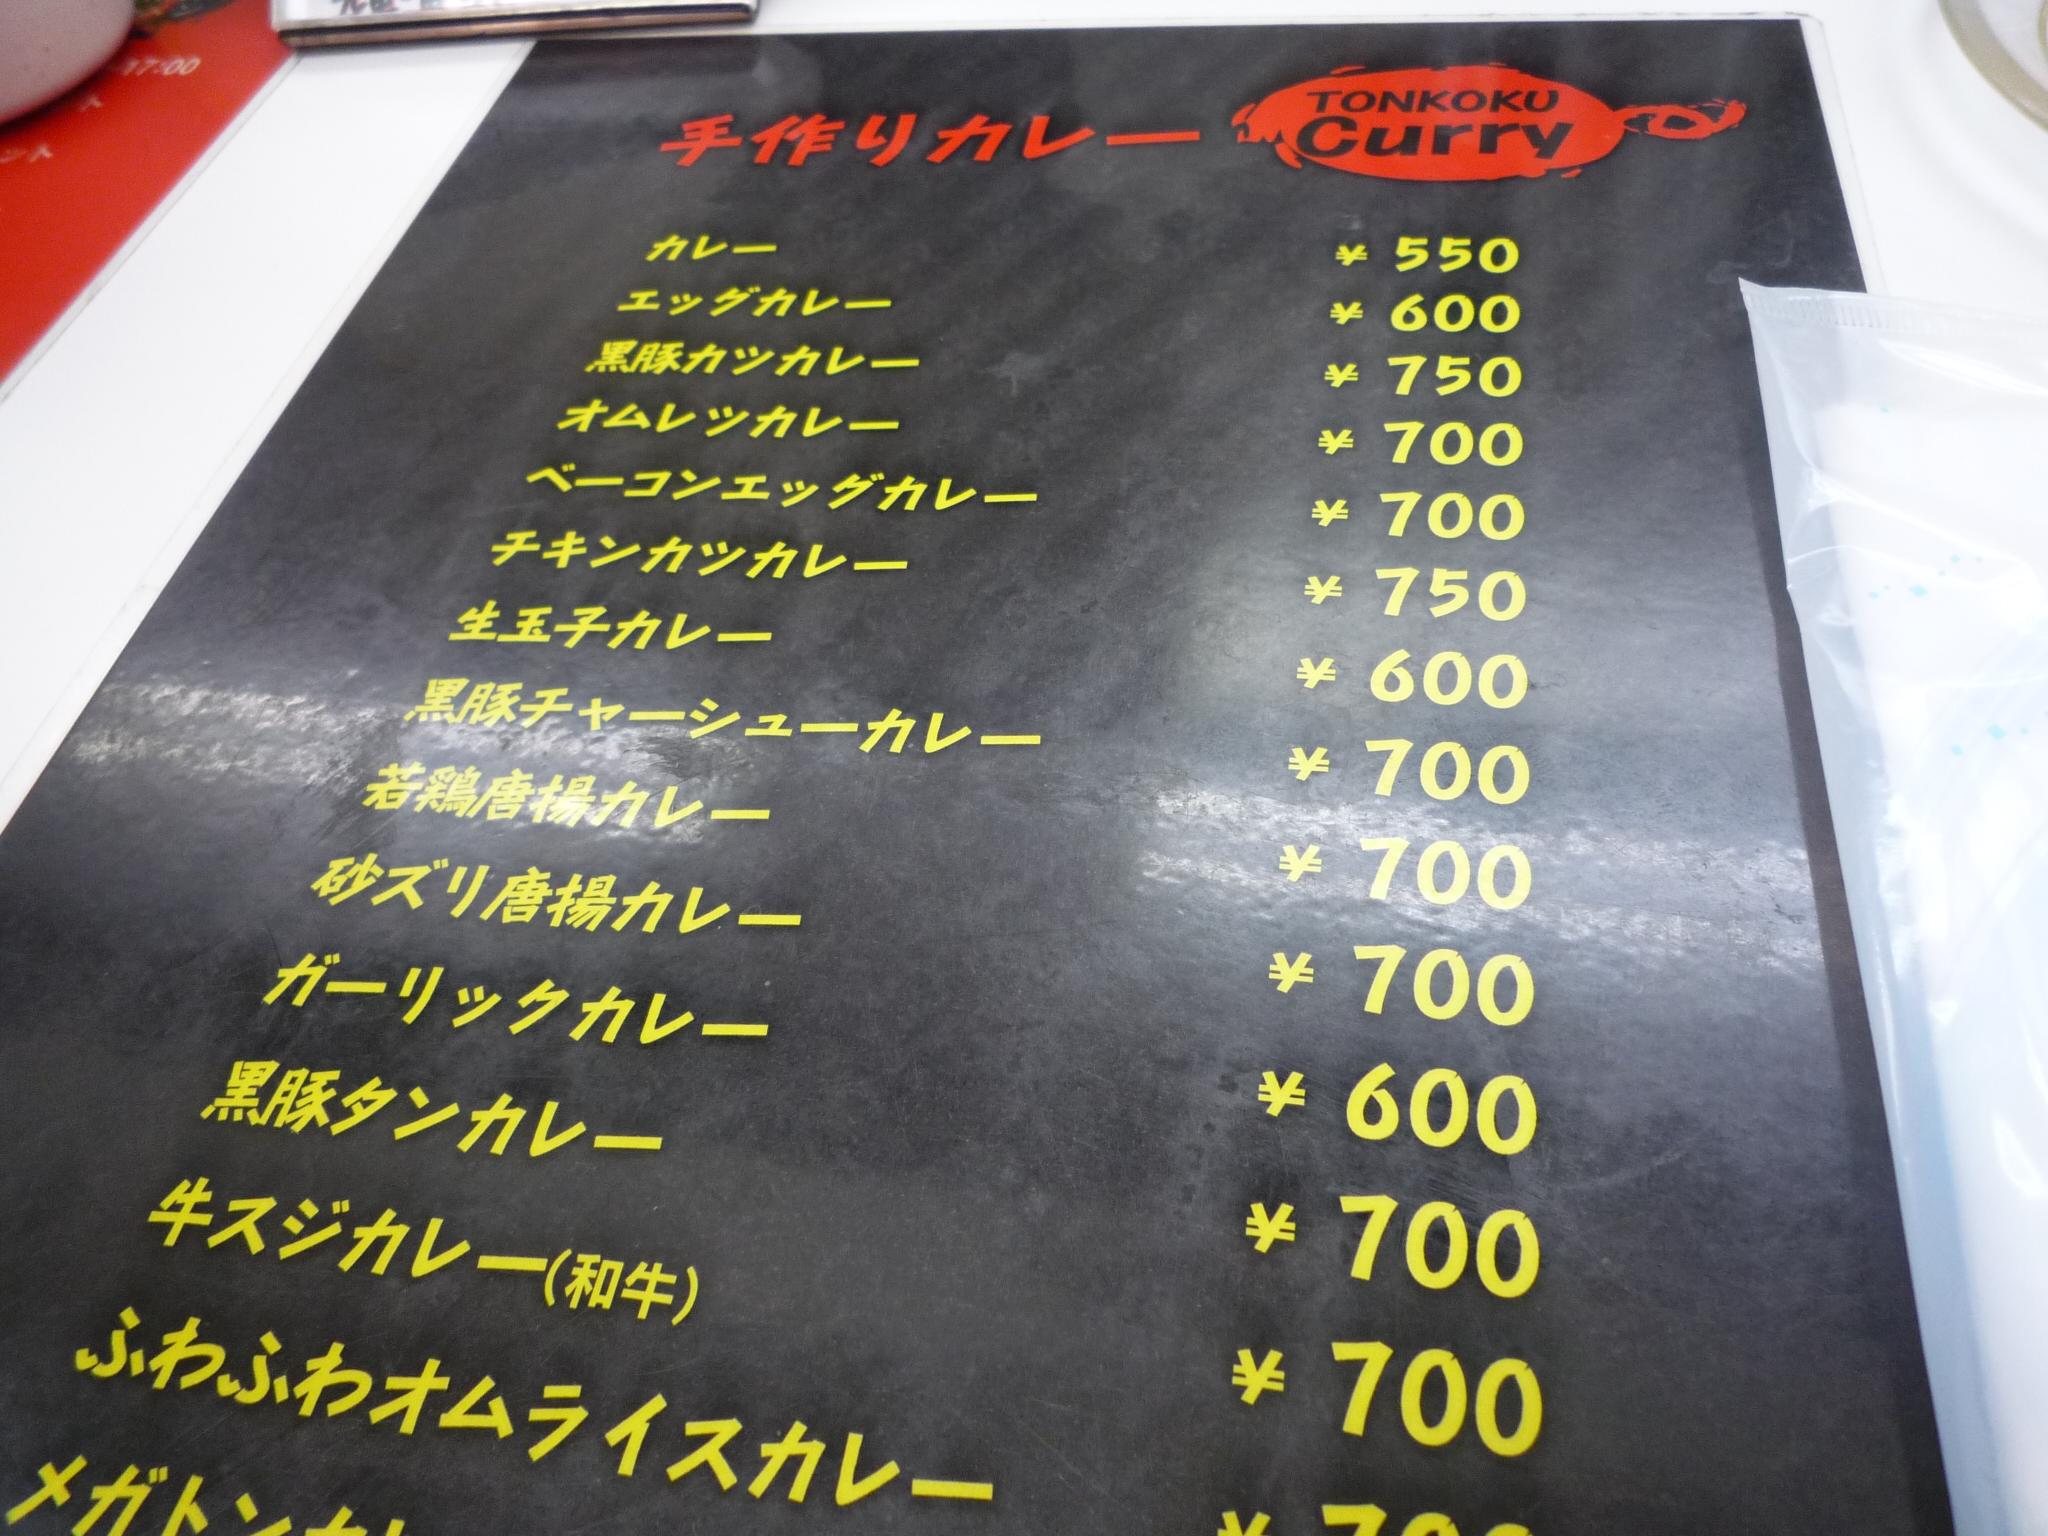 17:00
手作りカレー TONKOKU Curry
カレー ¥ 550
エッグカレー ¥ 600
黒豚カツカレー ¥ 750
オムレツカレー ¥ 700
ベーコンエッグカレー ¥ 700
チキンカツカレー ¥ 750
生玉子カレー ¥ 600
黒豚チャーシューカレー ¥ 700
若鶏唐揚カレー ¥ 700
砂ズリ唐揚カレー ¥ 700
ガーリックカレー ¥ 600
黒豚タンカレー ¥ 700
牛スジカレー(和牛) ¥ 700
ふわふわオムライスカレー ¥ 700
メガトンカレ